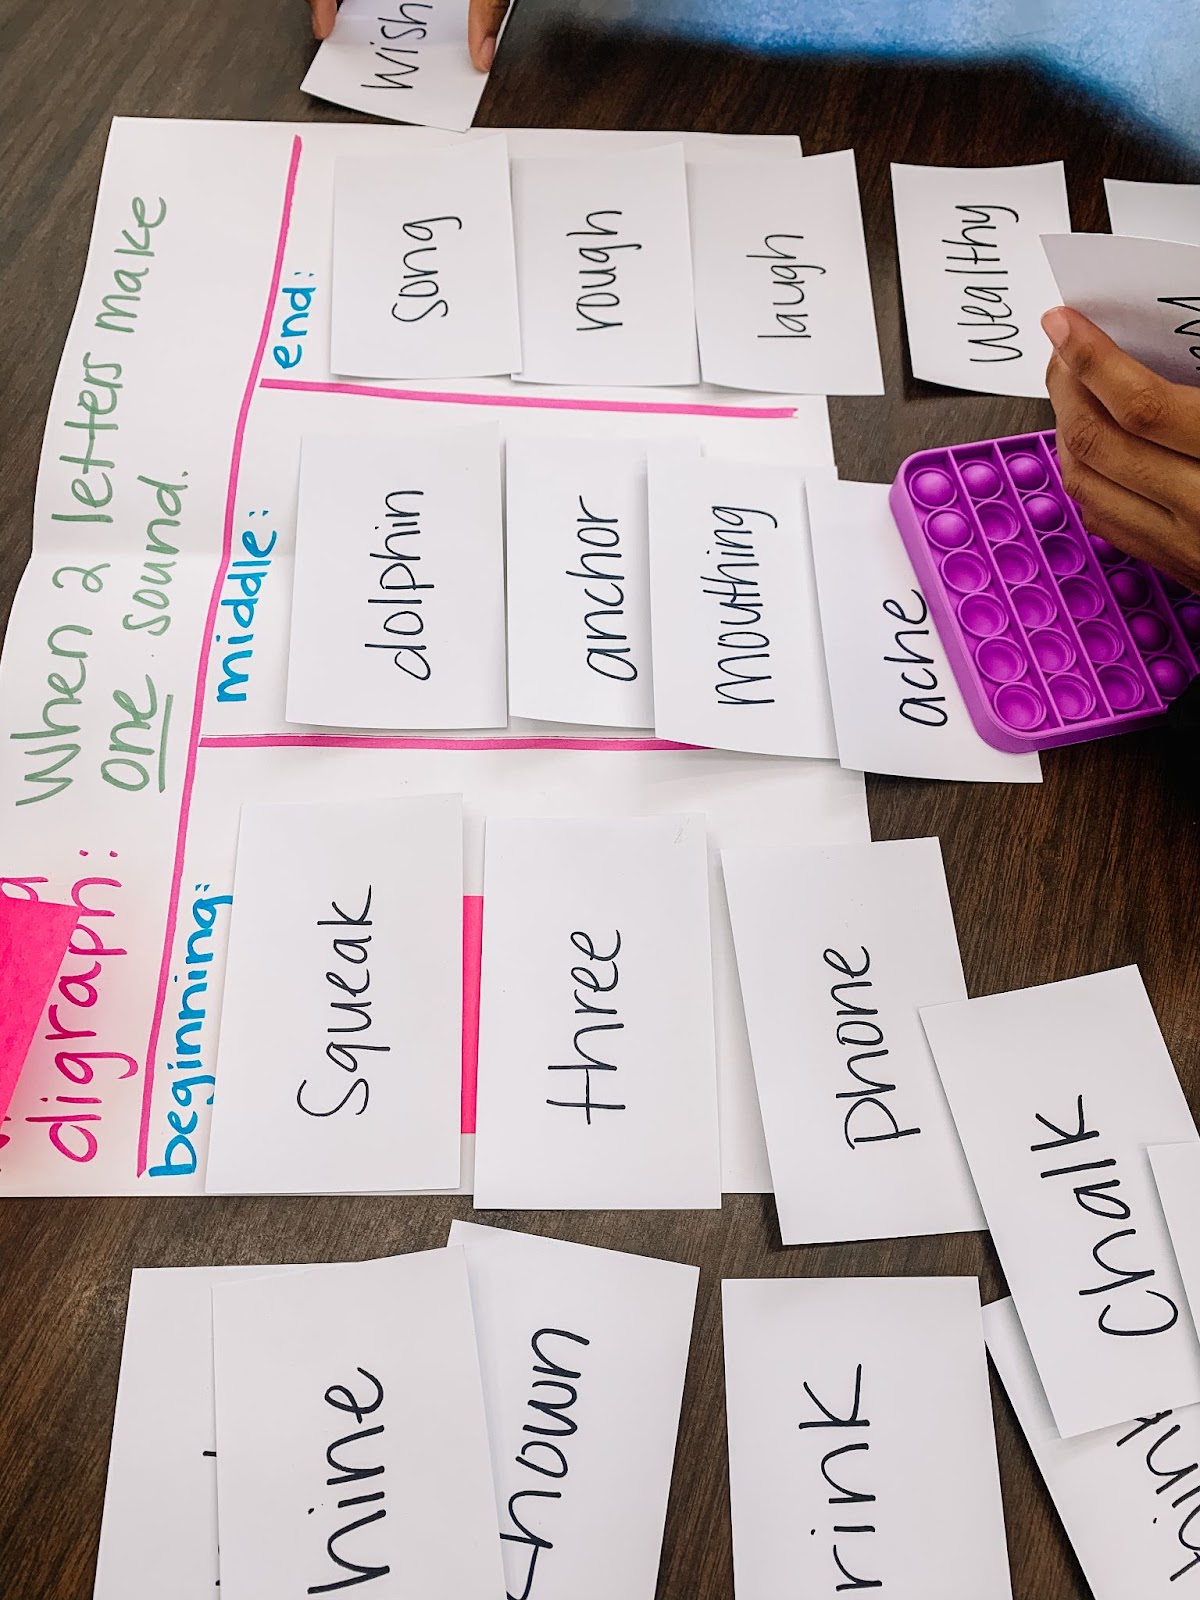 digraph: When 2 letters make
one sound.
beginning:
middle:
end:
Squeak
three
phone
Chalk
dolphin
anchor
mouthing
ache
song
rough
laugh
Wealthy
Wish
hine
rink